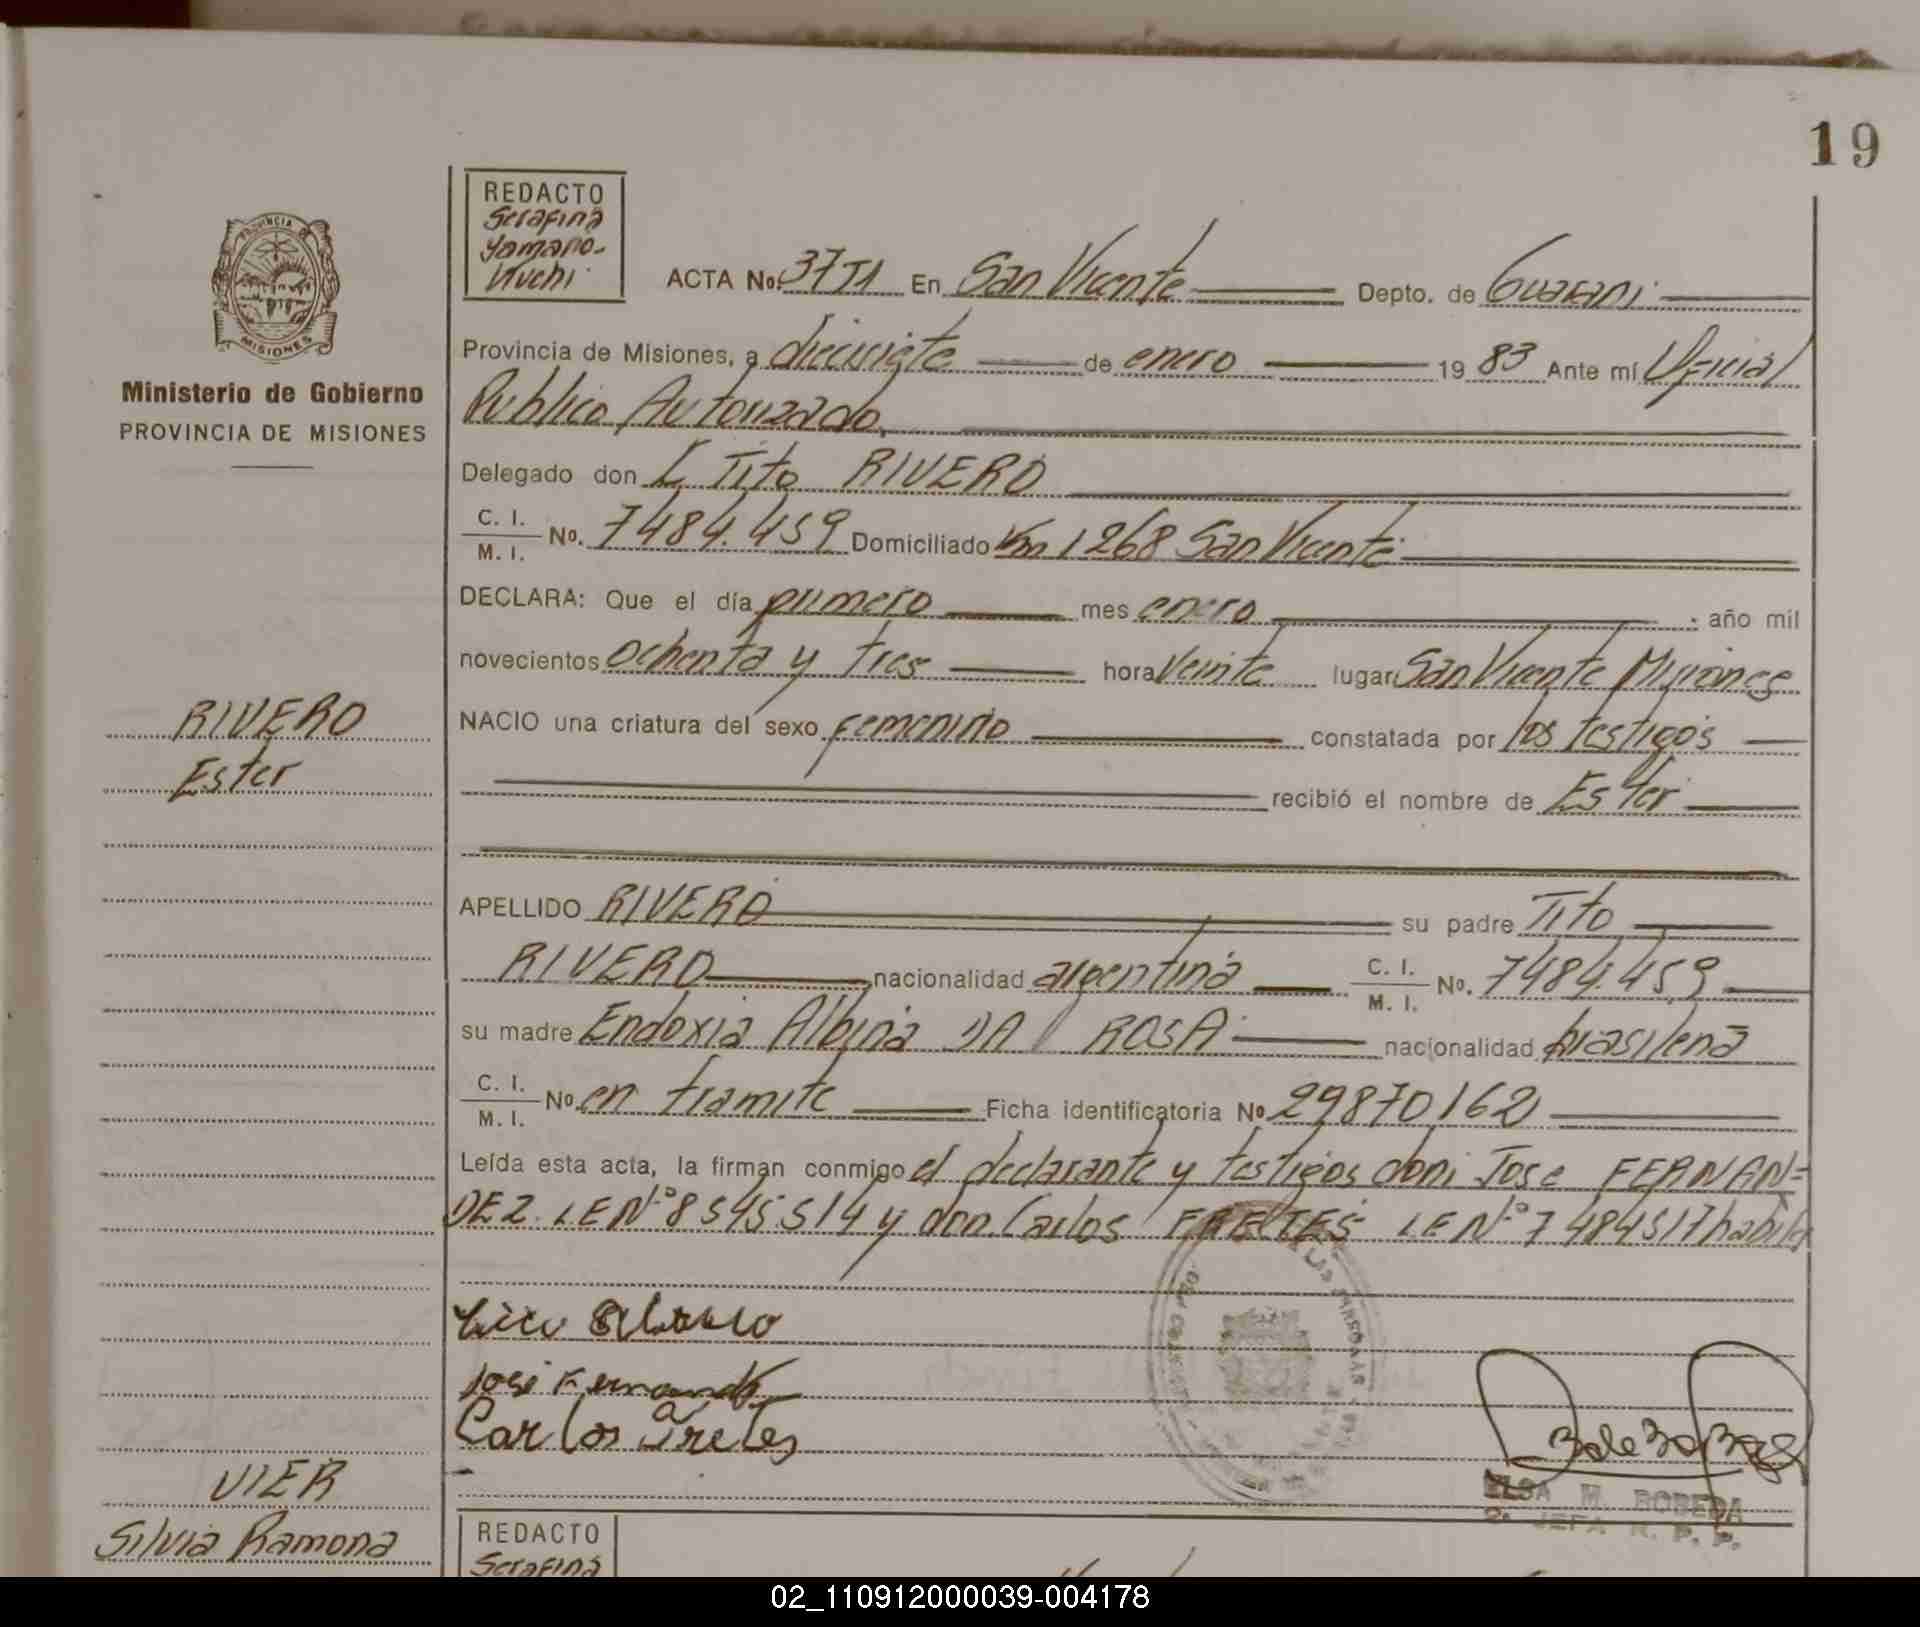 19
REDACTO
Serafina
Yamano-
Kuchi
PROVINCIA DE
MISIONES
Ministerio de Gobierno
PROVINCIA DE MISIONES
ACTA No. 37T1 En San Vicente Depto. de Guarani
Provincia de Misiones, a diecisiete de enero 19 83 Ante mí Oficial
Publico Autorizado,
Delegado don Tito RIVERO
C. I. / M. I. No. 7484.459 Domiciliado Km 1268 San Vicente
DECLARA: Que el día primero mes enero año mil
novecientos ochenta y tres hora Veinte lugar San Vicente Misiones
NACIO una criatura del sexo femenino constatada por los testigos
recibió el nombre de Ester
RIVERO
Ester
APELLIDO RIVERO su padre Tito
RIVERO nacionalidad argentina C. I. / M. I. No. 7484.459
su madre Endoxia Albina DA ROSA nacionalidad brasilena
C. I. / M. I. No. en tramite Ficha identificatoria No 29870162
Leída esta acta, la firman conmigo el declarante y testigos don: Jose FERNAN=
DEZ. LE Nº 8545514 y don Carlos FRETES LE Nº 7484517 habiles
José Fernandez
Carlos Fretes
ELSA M. BOBEDA
JEFA R. P. P.
VIER
Silvia Ramona
REDACTO
Serafina
02_110912000039-004178